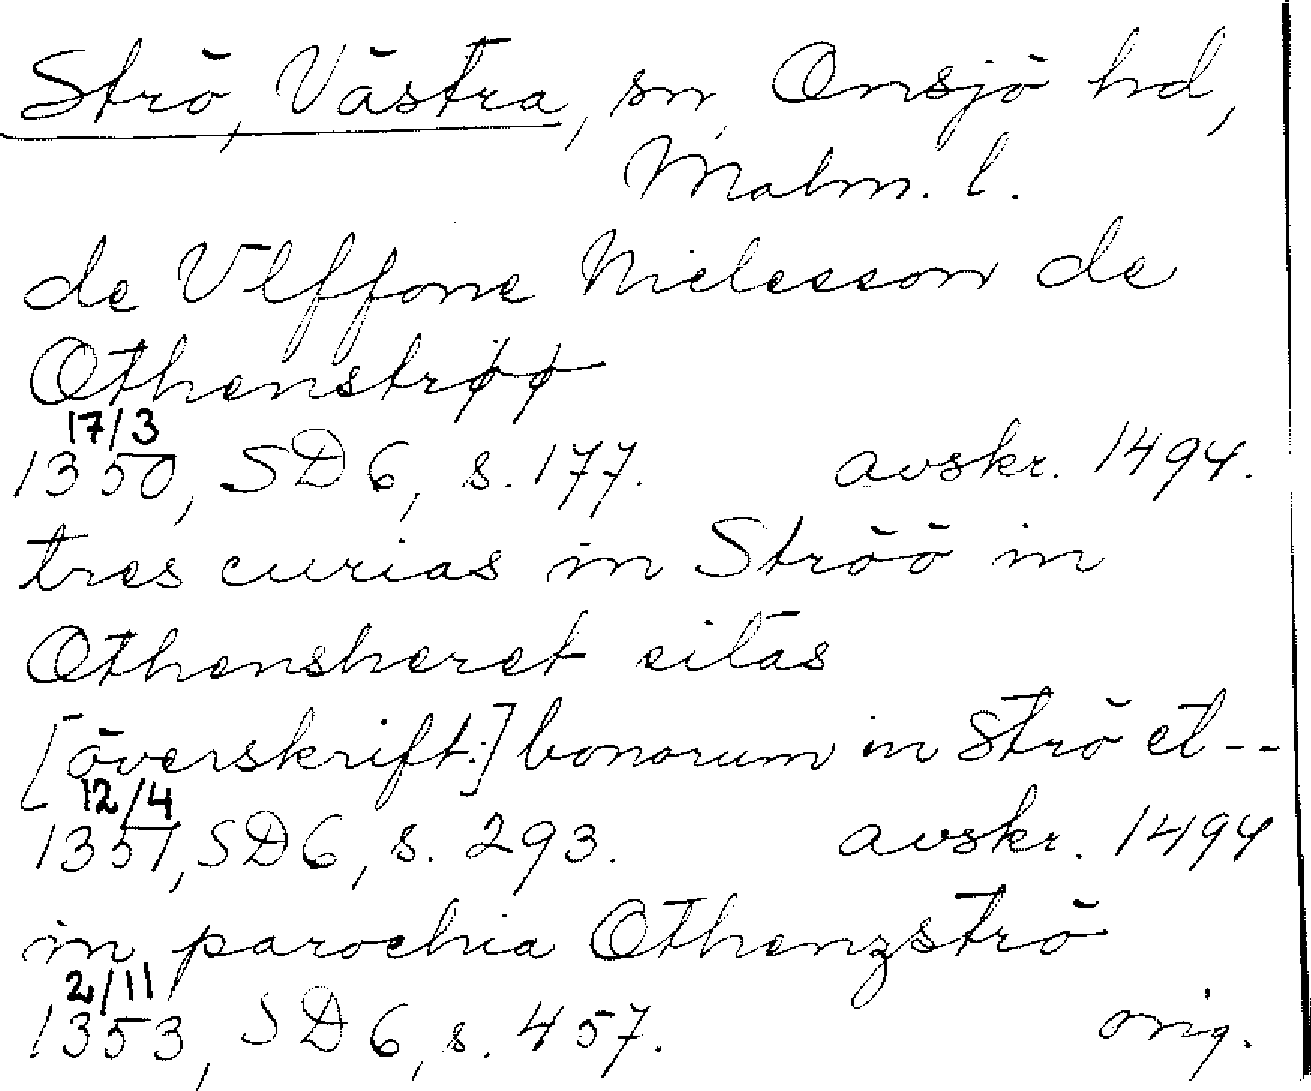 Strö, Västra, sn, Onsjö hd,
Malm. l.
de Vlffone Nielesson de
Othenstrøø
17/3
1350, SD 6, s. 177. avskr. 1494.
tres curias in Ströö in
Othensheret sitas
[överskrift:] bonorum in Strö et --
12/4
1351, SD 6, s. 293. avskr. 1494
in parochia Othenzströ
2/11
1353, SD 6, s. 457. orig.